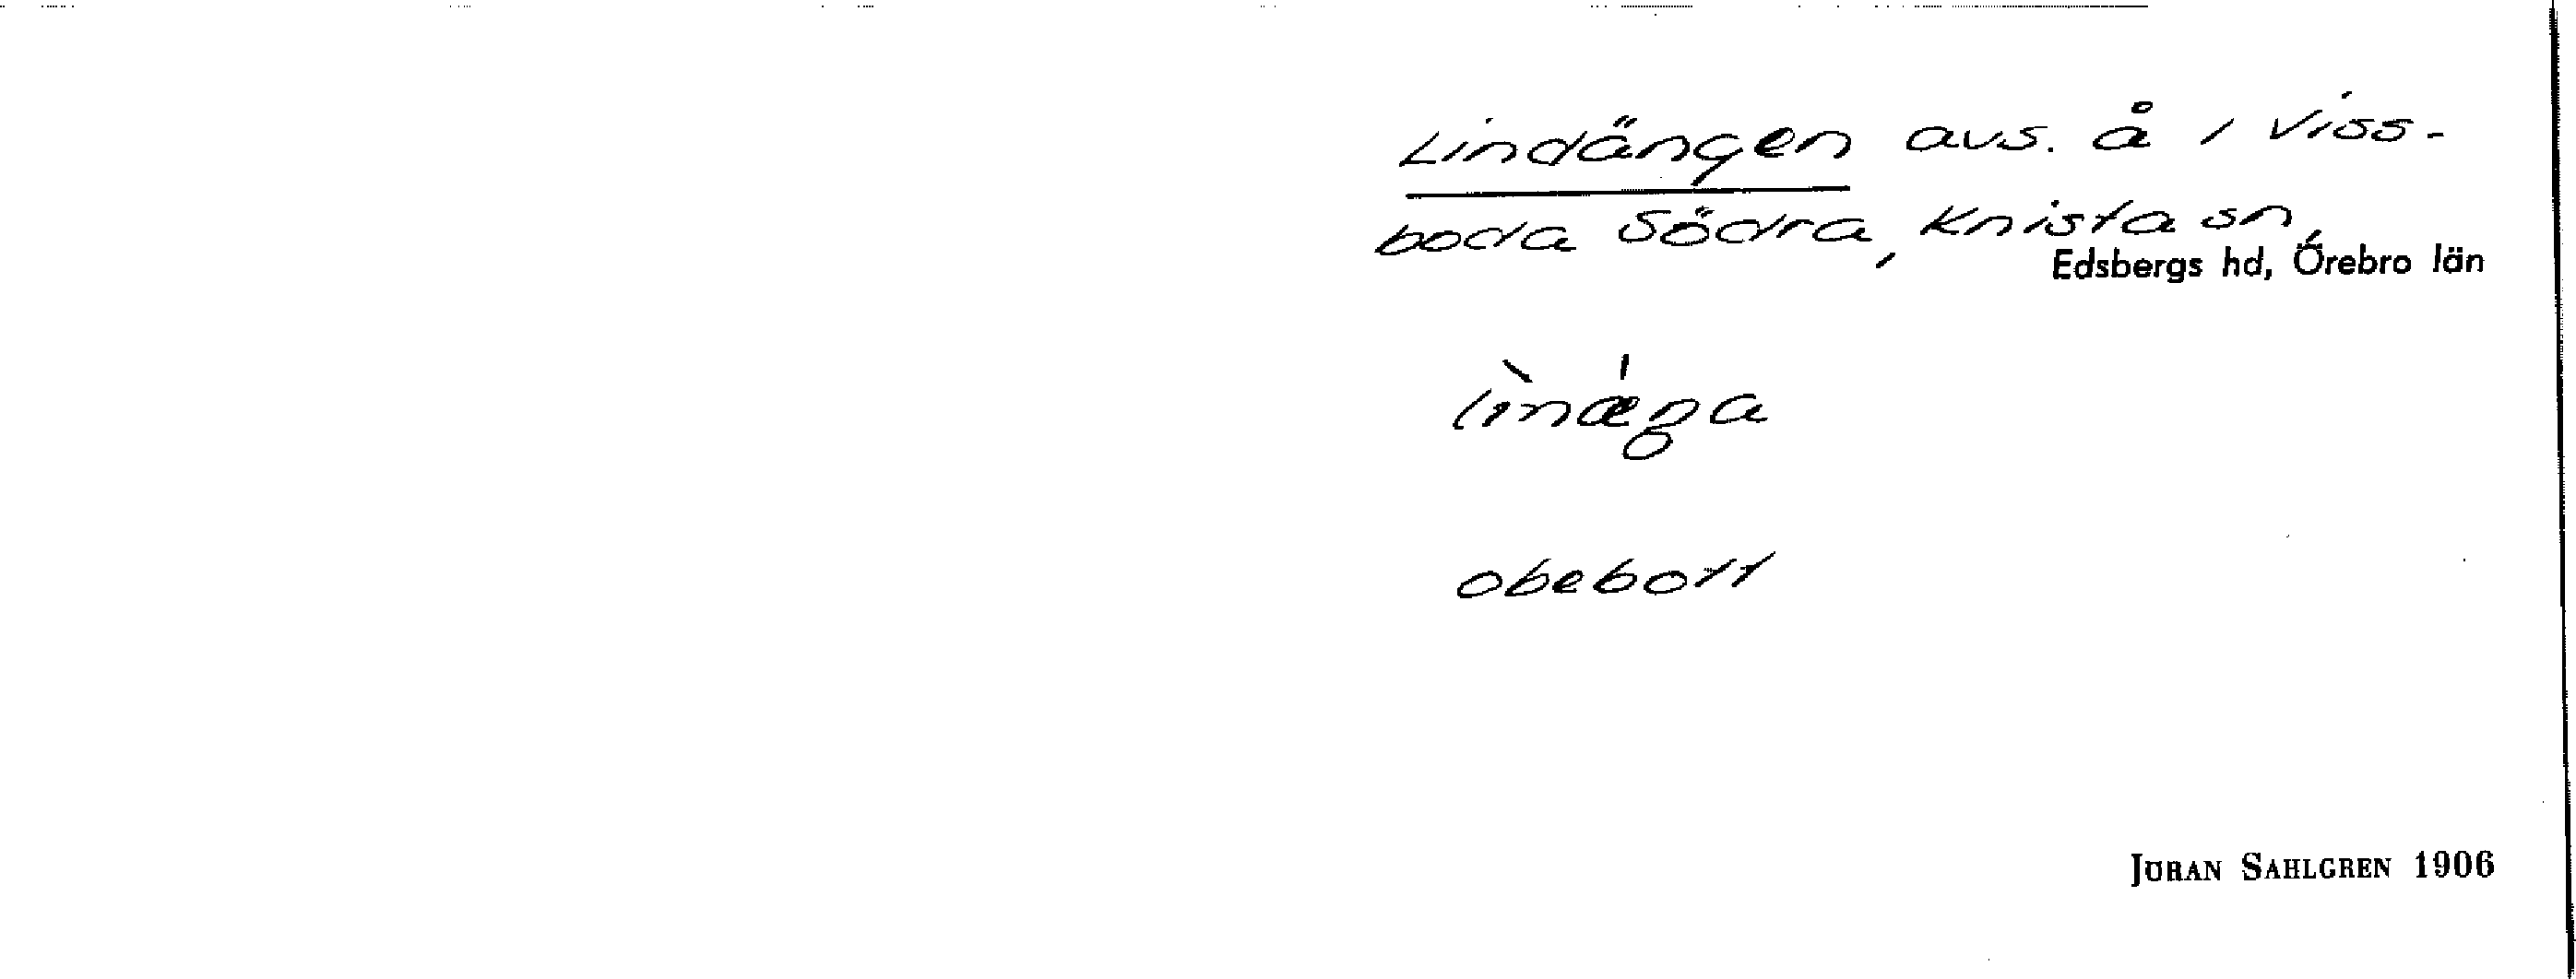 Lindängen avs. å i Viss-
boda Södra, Knista sn,
Edsbergs hd, Örebro län
lìnǽŋa
obebott
JÖRAN SAHLGREN 1906